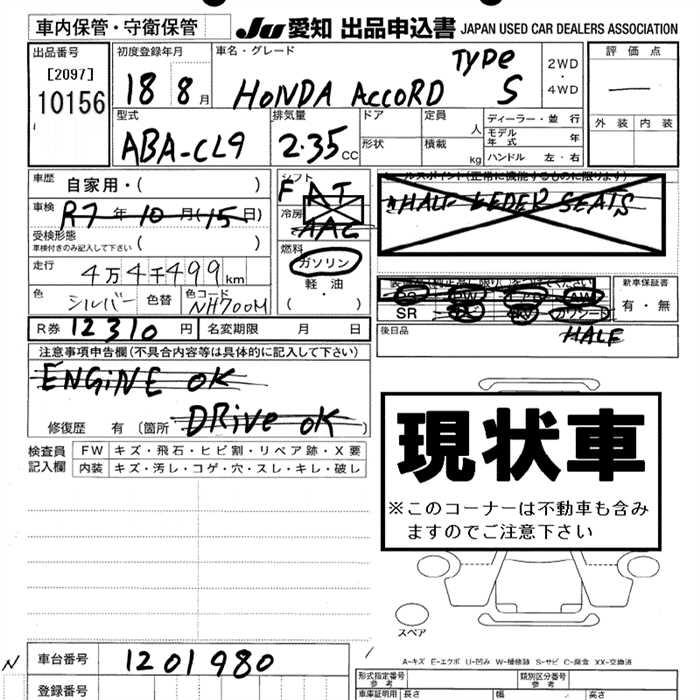 車内保管・守衛保管
JU 愛知 出品申込書 JAPAN USED CAR DEALERS ASSOCIATION
出品番号 初度登録年月 車名・グレード 評価点
[2097]
10156
18 8月 HONDA ACCORD TYPE S 2WD・4WD
型式 排気量 ドア 定員 人 ディーラー・並行 外装 内装
モデル年式 年
ABA-CL9 2.35 CC 形状 積載 kg ハンドル 左・右
車歴 自家用・( ) シフト
F AT
車検 R7年10月(15日) 冷房
AAC
HALF LEDER SEATS
受検形態
車検付きのみ記入して下さい ( ) 燃料
ガソリン
走行 4万4千499km 軽油
(・)
新車保証書
有・無
SR
色 シルバー 色替 色コード NH700M
後日品
HALF
R券 12310円 名変期限 月 日
注意事項申告欄(不具合内容等は具体的に記入して下さい)
ENGINE OK
DRIVE OK
修復歴 有 (箇所
検査員記入欄 FW キズ・飛石・ヒビ割・リペア跡・X要
内装 キズ・汚レ・コゲ・穴・スレ・キレ・破レ
現状車
※このコーナーは不動車も含み
ますのでご注意下さい
スペア
A-キズ E-エクボ U-凹み W-補修跡 S-サビ C-腐食 XX-交換済
N 車台番号 1201980
登録番号
形式指定番号 参考 類別区分番号 参考
車庫証明用 参考 長さ 幅 高さ